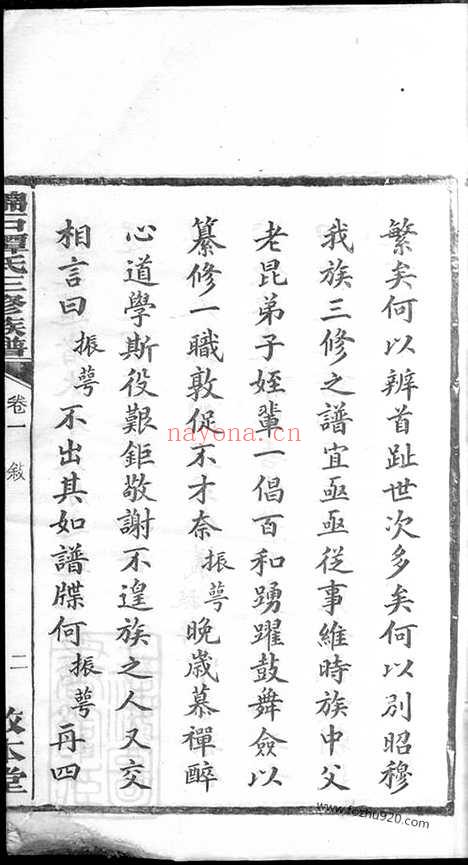 繁矣何以辨首趾世次多矣何以別昭穆
我族三修之譜宜亟亟從事維時族中父
老昆弟子姪輩一倡百和踴躍鼓舞僉以
纂修一職敦促不才奈振蕚晚歲慕禪醉
心道學斯役艱鉅敬謝不遑族之人又交
相言曰振蕚不出其如譜牒何振蕚再四
譚氏三修族譜
卷一
敘
二
敦本堂
nayona.cn
www.fozhu920.com